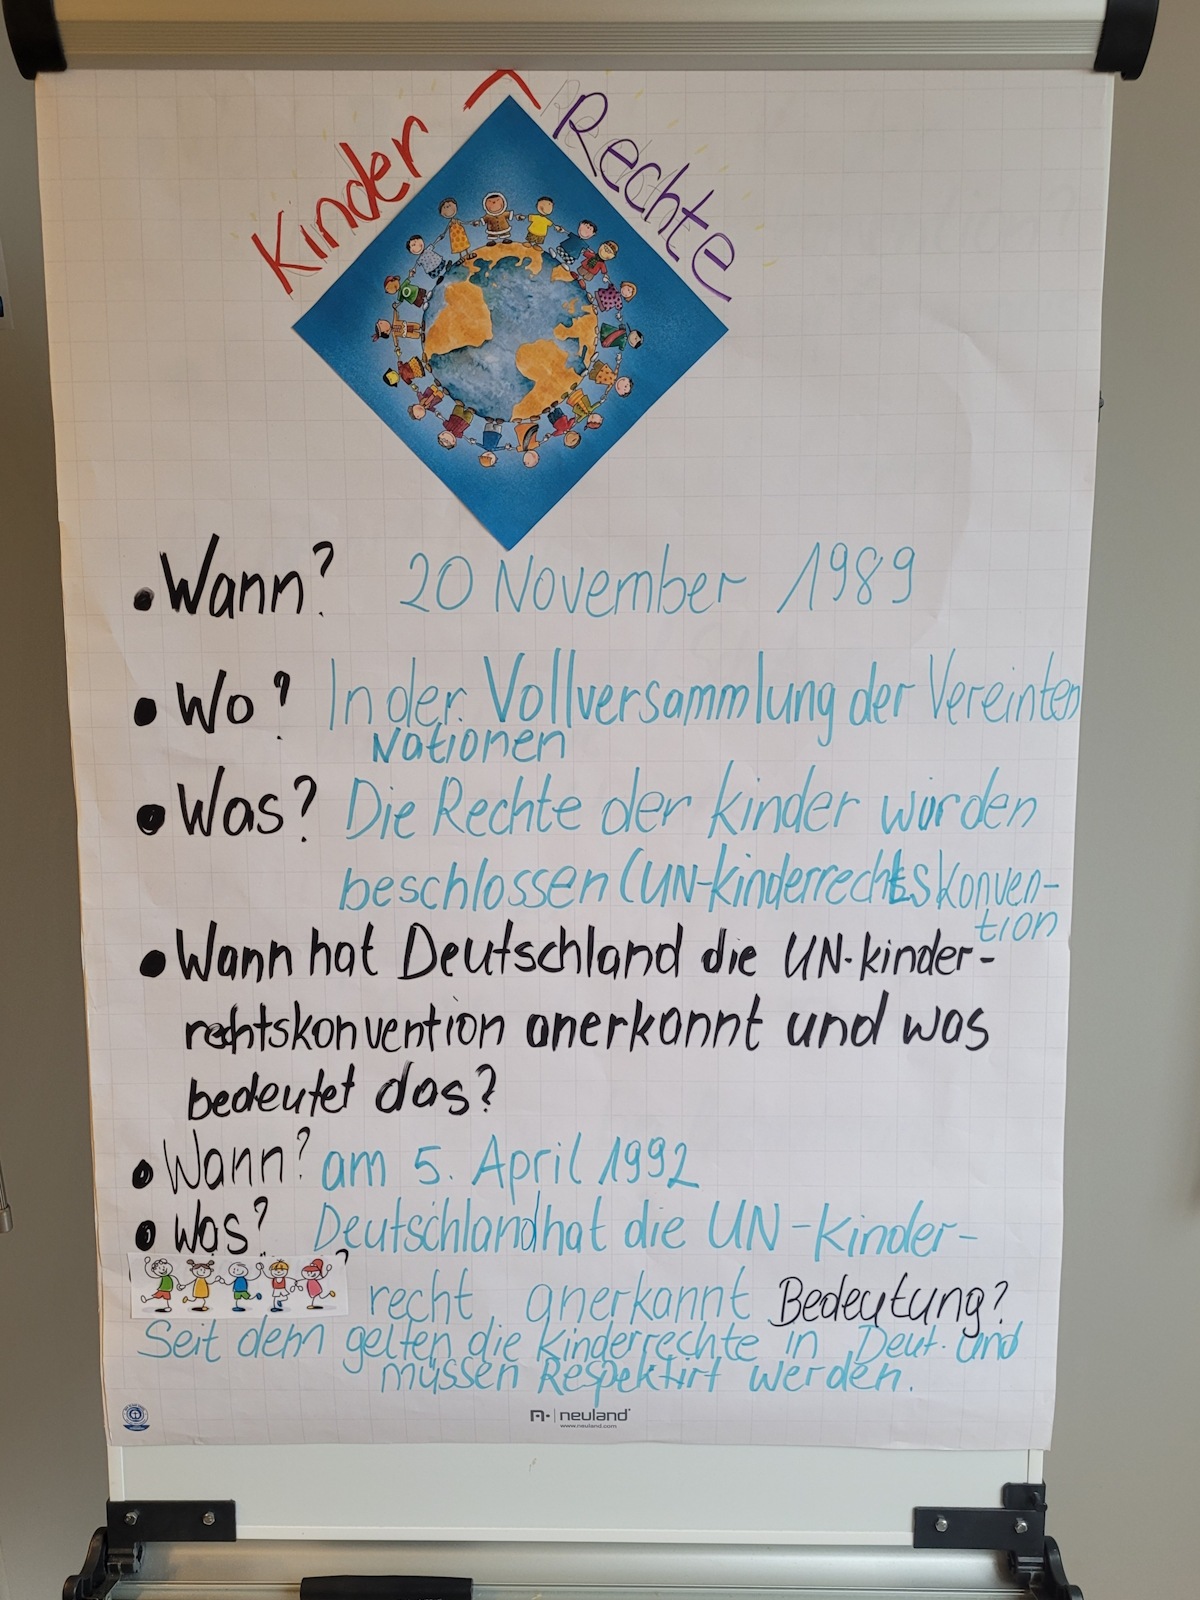 Kinder Rechte
• Wann? 20 November 1989
• Wo? In der Vollversammlung der Vereinten
Nationen
• Was? Die Rechte der kinder wurden
beschlossen (UN-kinderrechtskonven-
tion
• Wann hat Deutschland die UN-kinder-
rechtskonvention anerkannt und was
bedeutet das?
• Wann? am 5. April 1992
• Was? Deutschland hat die UN-Kinder-
recht anerkannt Bedeutung?
Seit dem gelten die kinderrechte in Deut. und
müssen Respektirt werden.
neuland
www.neuland.com